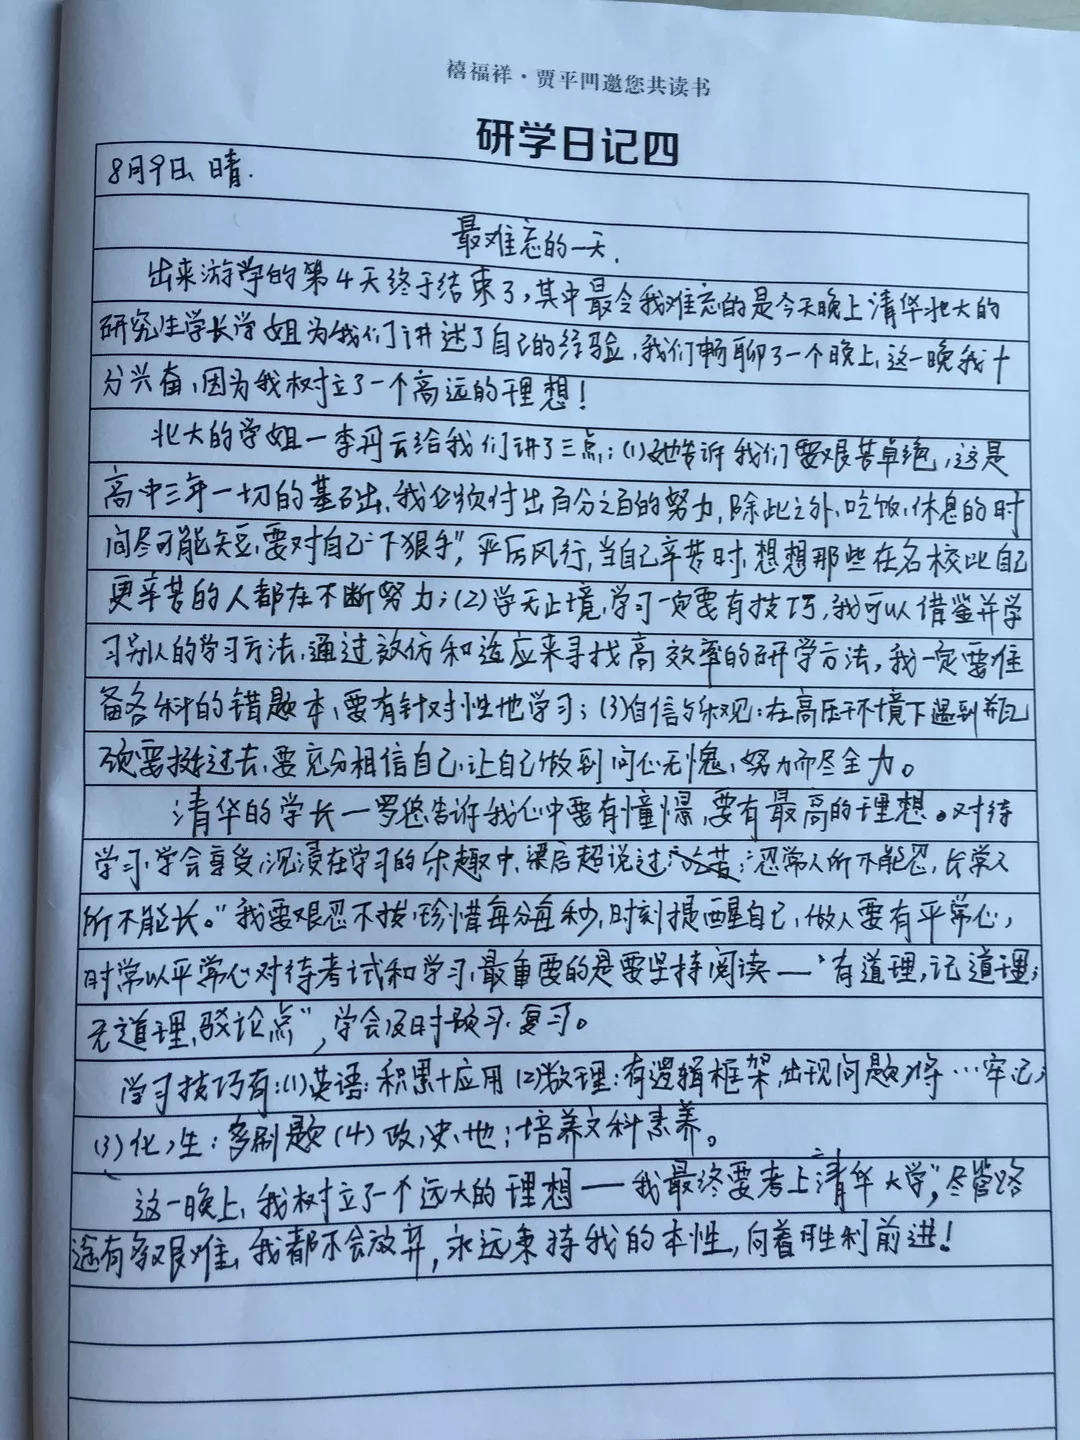 禧福祥·贾平凹邀您共读书
研学日记四
8月9日、晴.
最难忘的一天.
出来游学的第4天终于结束了,其中最令我难忘的是今天晚上清华北大的
研究生学长学姐为我们讲述了自己的经验,我们畅聊了一个晚上,这一晚我十
分兴奋,因为我树立了一个高远的理想!
北大的学姐一李丹云给我们讲了三点:(1)她告诉我们要艰苦卓绝,这是
高中三年一切的基础,我必须付出百分之百的努力,除此之外,吃饭,休息的时
间尽可能短,要对自己"下狠手",严厉风行,当自己辛苦时,想想那些在名校比自己
更辛苦的人都在不断努力;(2)学无止境,学习一定要有技巧,我可以借鉴并学
习别人的学习方法,通过效仿和适应来寻找高效率的研学方法,我一定要准
备各科的错题本,要有针对性地学习;(3)自信与乐观:在高压环境下遇到瓶
颈要挺过去,要充分相信自己,让自己做到问心无愧,努力而尽全力。
清华的学长一罗悠告诉我心中要有憧憬,要有最高的理想。对待
学习,学会享受,沉浸在学习的乐趣中,梁启超说过:"忍常人所不能忍,长常人
所不能长。"我要艰忍不拔,珍惜每分每秒,时刻提醒自己,做人要有平常心,
时常以平常心对待考试和学习,最重要的是要坚持阅读——"有道理,记道理;
无道理,驳论点",学会及时预习、复习。
学习技巧有:(1)英语:积累+应用(2)数理:有逻辑框架,出现问题,将…牢记;
(3)化,生:多刷题(4)政,史,地:培养文科素养。
这一晚上,我树立了一个远大的理想——我最终要考上"清华大学",尽管路
途有多艰难,我都不会放弃,永远秉持我的本性,向着胜利前进!